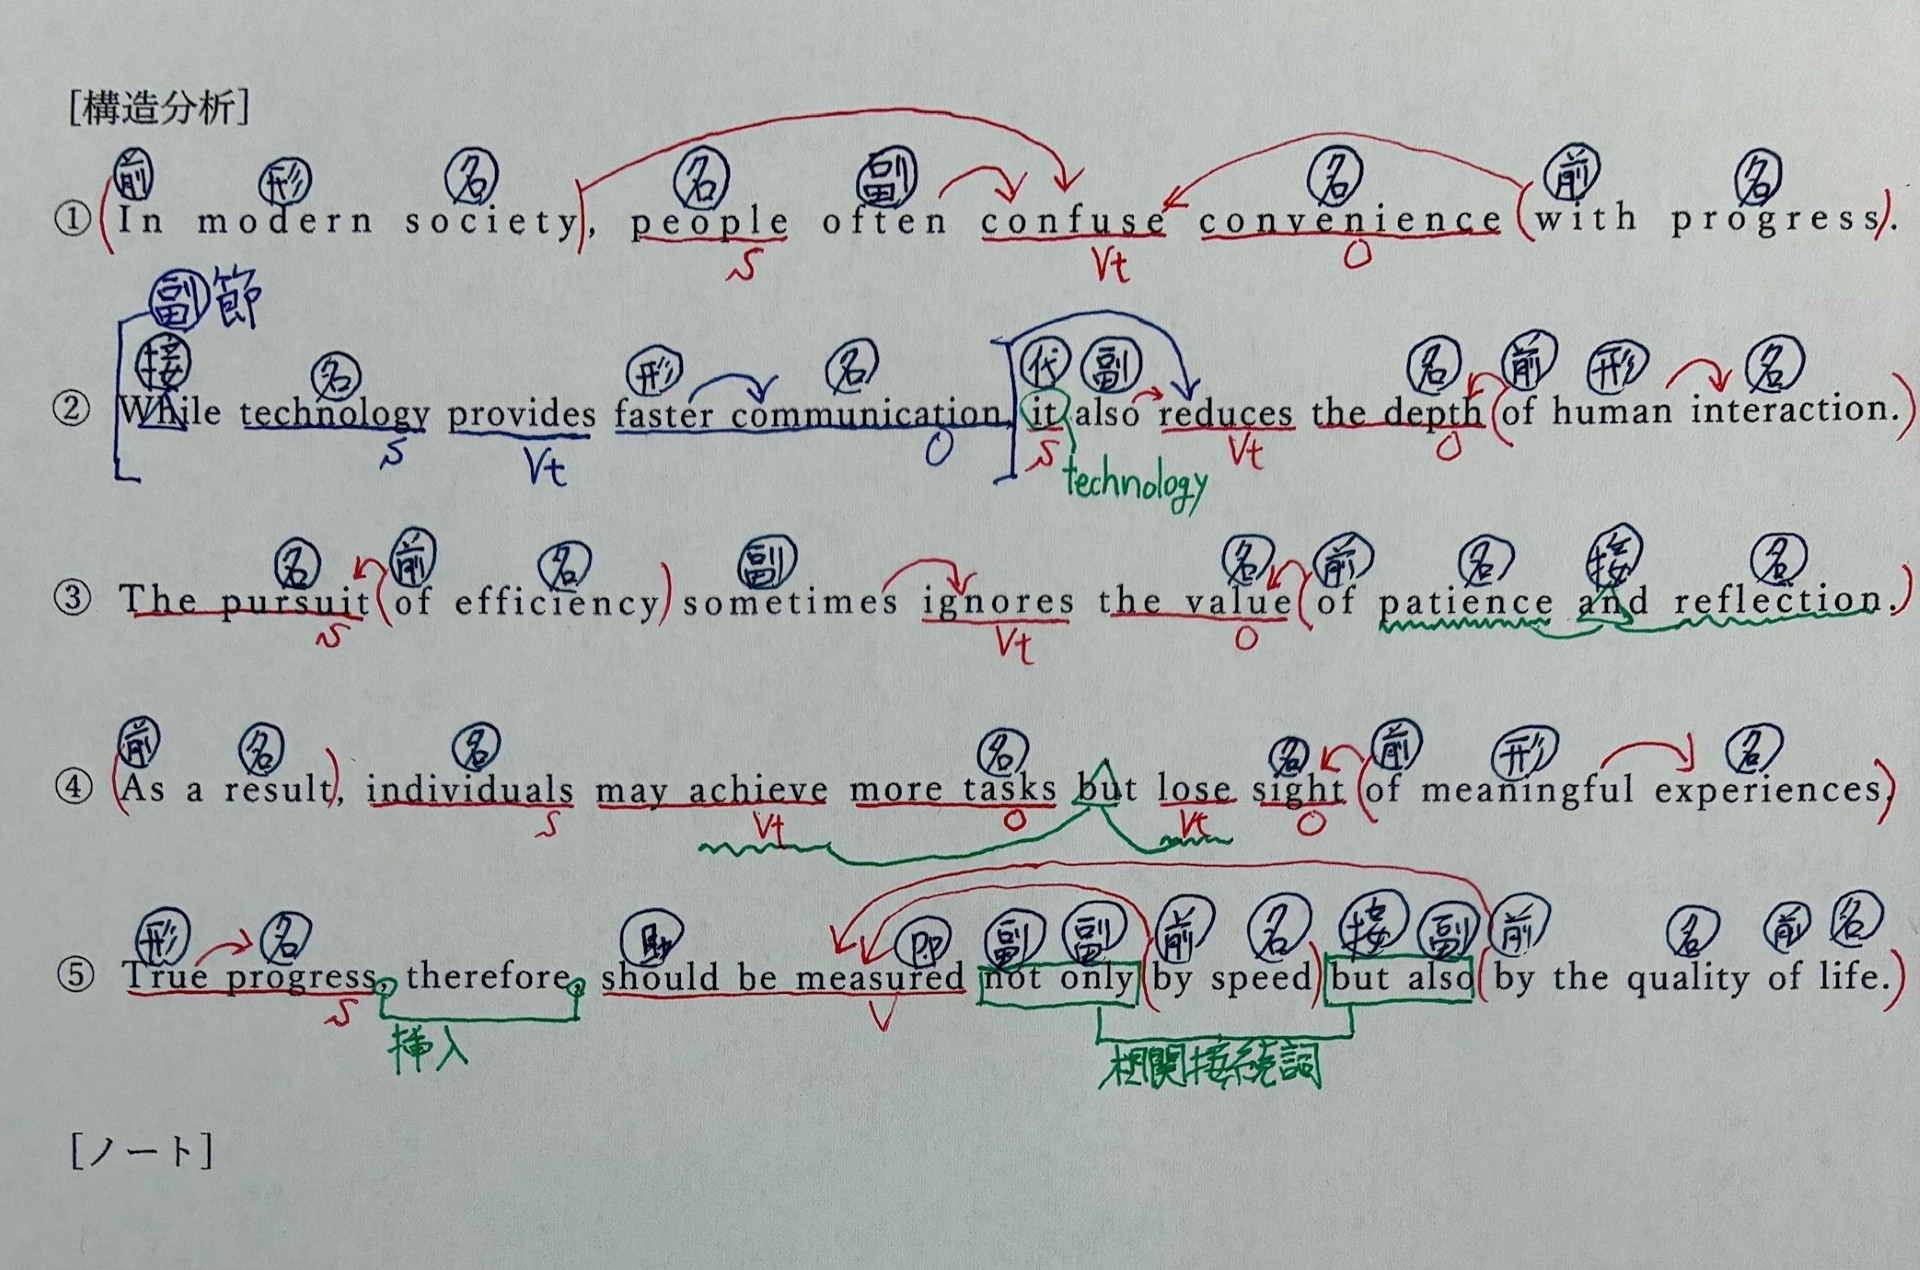 [構造分析]
前 形 名 名 副 名 前 名
① (In modern society), people often confuse convenience (with progress).
S Vt O
副節
接 名 形 名 代 副 名 前 形 名
② [While technology provides faster communication,] it also reduces the depth (of human interaction.)
S Vt O S Vt O
technology
名 前 名 副 名 前 名 接 名
③ The pursuit (of efficiency) sometimes ignores the value (of patience and reflection.)
S Vt O
前 名 名 名 名 前 形 名
④ (As a result), individuals may achieve more tasks but lose sight (of meaningful experiences.)
S Vt O Vt O
形 名 助 PP 副 副 前 名 接 副 前 名 前 名
⑤ True progress, therefore, should be measured not only (by speed) but also (by the quality of life.)
S V
挿入 相関接続詞
[ノート]